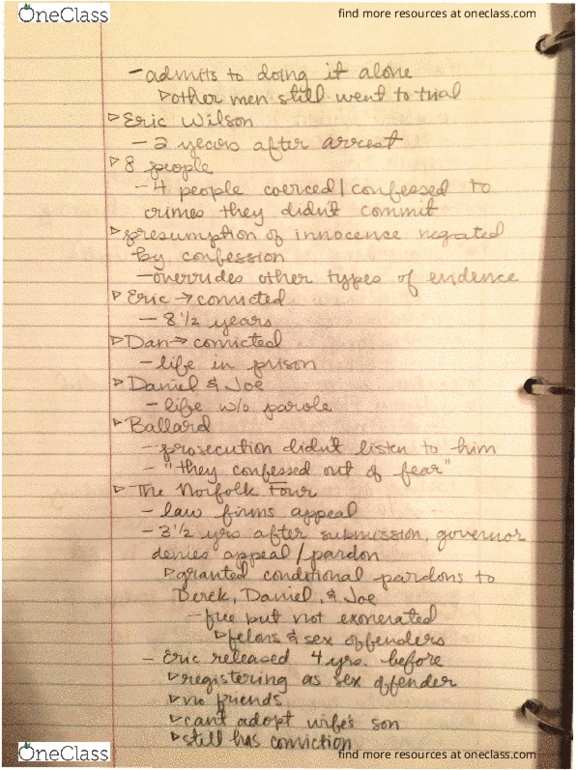 OneClass
find more resources at oneclass.com
- admits to doing it alone
▹other men still went to trial
▹Eric Wilson
- 2 years after arrest
▹8 people
- 4 people coerced/confessed to
crimes they didn't commit
▹presumption of innocence negated
by confession
- overrides other types of evidence
▹Eric → convicted
- 8 1/2 years
▹Dan → convicted
- life in prison
▹Daniel & Joe
- life w/o parole
▹Ballard
- prosecution didn't listen to him
- "they confessed out of fear"
▹The Norfolk Four
- law firms appeal
- 3 1/2 yrs after submission, governor
denies appeal/pardon
▹granted conditional pardons to
Derek, Daniel, & Joe
- free but not exonerated
▹felons & sex offenders
- Eric released 4 yrs. before
▹registering as sex offender
▹no friends
▹can't adopt wife's son
▹still has conviction
OneClass
find more resources at oneclass.com